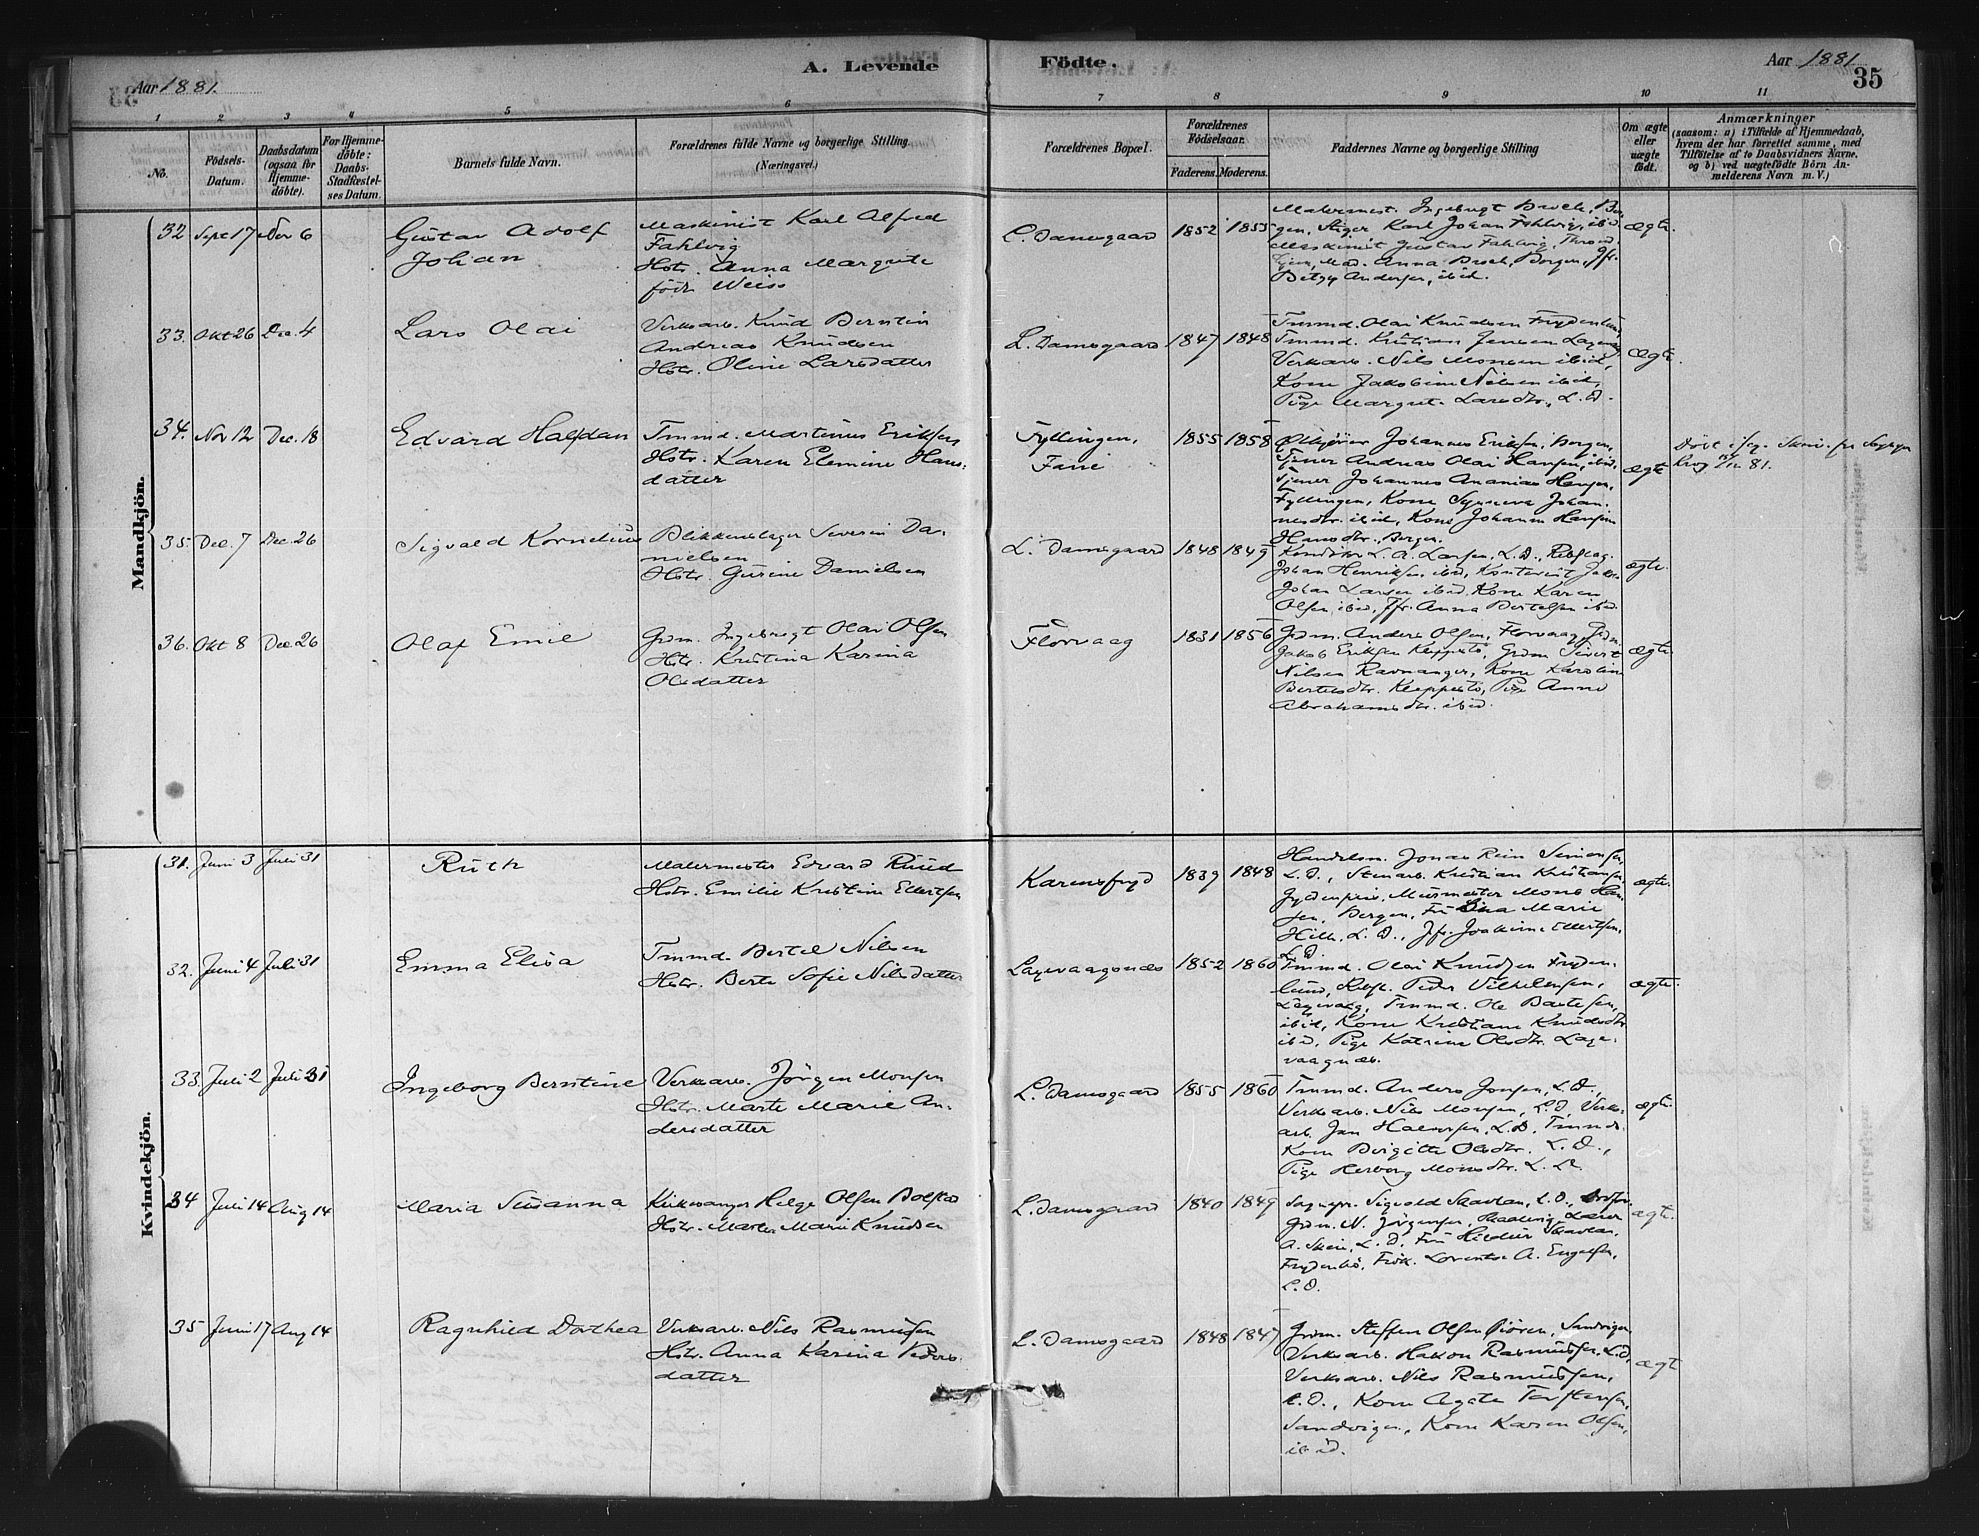 Aar 1881.
A. Levende
Födte.
Aar 1881
35
1 2 3 4 5 6 7 8 9 10 11
No.
Födsels-
Datum.
Daabsdatum
(ogsaa for
Hjemme-
döbte).
For Hjemme-
döbte:
Daabs-
Stadfæstel-
ses Datum.
Barnets fulde Navn.
Forældrenes fulde Navne og borgerlige Stilling
(Næringsvei.)
Forældrenes Bopæl.
Forældrenes
Födselsaar.
Faderens. Moderens.
Faddernes Navne og borgerlige Stilling
Om ægte
eller
uægte
födt.
Anmærkninger
(saasom: a) i Tilfælde af Hjemmedaab,
hvem der har forrettet samme, med
Tilföielse af to Daabsvidners Navne,
og b) ved uægtefödte Börn An-
melderens Navn m. V.)
Mandkjön.
32 Sept 17 Nov 6
Gustav Adolf
Johan
Maskinist Karl Alfred
Fahlvig
Hstr. Anna Margrete
födt Weiss
L. Damsgaard 1852 1855
Malermest. Ingebrigt Broch, Ber-
gen, Stiger Karl Johan Fahlvig, ibid.
Maskinist Gustav Fahlvig, Thrond-
hjem, Mad. Anna Broch, Bergen, Jfr.
Betzy Andersen, ibid.
ægte.
33. Okt 26 Dec. 4
Lars Olai
Verksarb. Knud Berntin
Andreas Knudsen
Hstr. Oline Larsdatter
L. Damsgaard 1847 1848
Tmmd. Olai Knudsen Frydenlund
Tmmd. Kristian Jensen
Verksarb. Nils Monsen ibid,
Kone Jakobine Nilsen ibid,
Pige Margret Larsdtr., L. D.
ægte.
34. Nov 12 Dec. 18
Edvard Halfdan
Tmmd. Martinus Eriksen
Hstr. Karen Elemine Hans-
datter
Fyllingen,
Fane
1855 1858
Johannes Eriksen, Bergen,
Tjener Andreas Olai Hansen, ibid.
Tjener Johannes Ananias Hansen,
Fyllingen, Kone Synneva Johan-
nesdtr. ibid, Kone Johanne Hansine
Hansdtr., Bergen.
ægte
Döbt
81.
35. Dec. 7 Dec. 26
Sigvald Kornelius
Blikkenslager Severin Da-
nielsen
Hstr. Gurine Danielsen
L. Damsgaard 1848 1849
L. A. Larsen, L. D., Rebslag.
Johan Henriksen ibid,
Johan Larsen ibid, Kone Karen
Olsen, ibid, Jfr. Anna Bertelsen ibid.
ægte.
36. Okt 8 Dec. 26
Olaf Emil
Grdm. Ingebrigt Olai Olsen
Hstr. Kristina Karina
Olsdatter
Florvaag 1831 1856
Grdm. Anders Olsen, Florvaag, Grdm.
Jakob Eriksen Kleppestö, Grdm Sivert
Nilsen Ravnanger, Kone Karoline
Bertelsdtr. Kleppestö, Pige Anne
Abrahamsdtr. ibid.
ægte.
Kvindekjön.
31. Juni 3 Juli 31
Ruth
Malermester Edvard Ruud
Hstr. Emilie Kristine Ellertsen
Karensfryd 1839 1848
Handelsm. Jonas Rein Simonsen,
L. D., Stenarb. Kristian Kristiansen,
Gyldenpris, Murmester Mons Han-
sen, Bergen, Fru Lina Marie
L. D., Jfr. Joakime Ellertsen,
L. D.
ægte.
32. Juni 4 Juli 31
Emma Elisa
Tmmd. Bertel Nilsen
Hstr. Berte Sofie Nilsdatter
Laxevaagsnes 1852 1860
Tmmd. Olai Knudsen Fryden-
lund, Rebsl. Peder Vilhelmsen,
Laxevaag, Tmmd. Ole Bastesen,
ibid, Kone Kristiane Knudsdtr
ibid, Pige Katrine Olsdtr. Laxe-
vaagnæs.
ægte.
33. Juli 2 Juli 31
Ingeborg Berntine
Verksarb. Jörgen Monsen
Hstr. Marte Marie An-
dersdatter
L. Damsgaard 1855 1860
Tmmd. Anders Jonsen, L. D.,
Verksarb. Nils Monsen, L. D, Verks-
arb. Jan Halvorsen, L. D, Tmmds.
Kone Birgitte Olsdtr. L. D.,
Pige Herborg Monsdtr. L. D.
ægte.
34 Juli 14 Aug 14
Maria Susanna
Kirkesanger Helge Olsen Bolstad
Hstr. Marte Marie Knudsen
L. Damsgaard 1840 1849
Sogepr. Sigvald Skavlan, L. D.,
Grdm. N. Jörgensen, Lærer
A. Skeie, L. D, Fru Hildur Skavlan,
Frydenbö, Frök. Lorentse A. Engelsen,
L. D.
ægte.
35 Juni 17 Aug 14
Ragnhild Dorthea
Verksarb. Nils Rasmussen
Hstr. Anna Karina Peders-
datter
L. Damsgaard 1848 1847
Grdm. Steffen Olsen Sandvigen
Verksarb. Hakon Rasmussen, L. D,
Verksarb. Nils Rasmussen,
L. D., Kone Agate Torstensen,
Sandvigen, Kone Karen Olsen,
ibid.
ægte